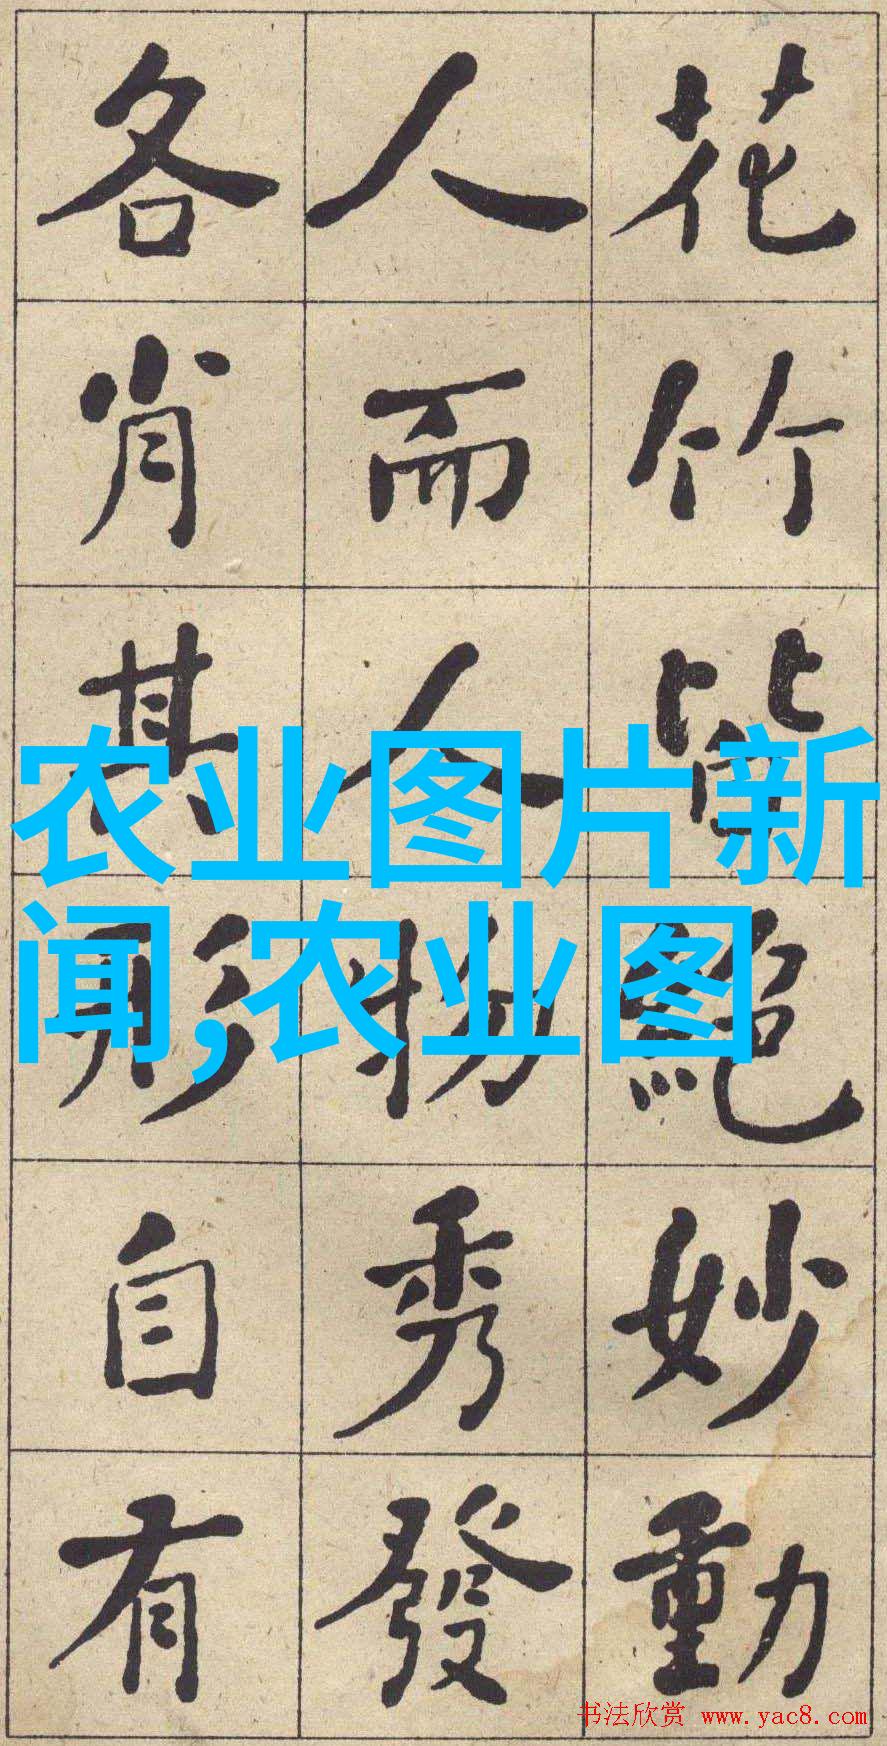 花竹皆絕妙動
人而人物秀發
各肖其形自有
农业图片新
闻,农业图
书法欣赏 www.yac8.com